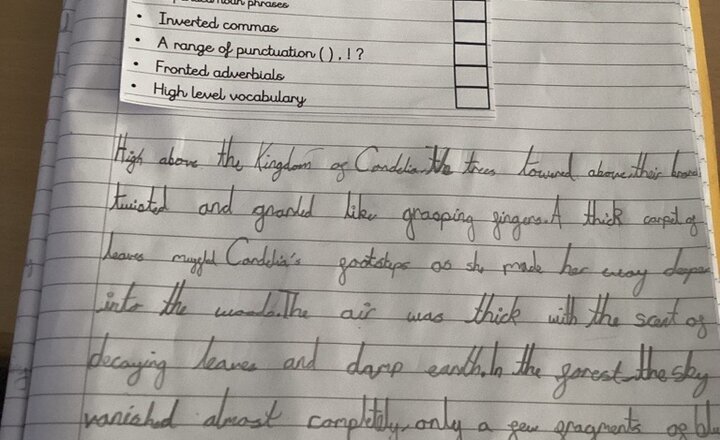 noun phrases
• Inverted commas
• A range of punctuation ( ) , ! ?
• Fronted adverbials
• High level vocabulary
High above the Kingdom of Candelia. The trees towered above, their
twisted and gnarled like grasping fingers. A thick carpet of
leaves muffled Candelia's footsteps as she made her way deeper
into the woods. The air was thick with the scent of
decaying leaves and damp earth. In the forest the sky
vanished almost completely, only a few fragments of